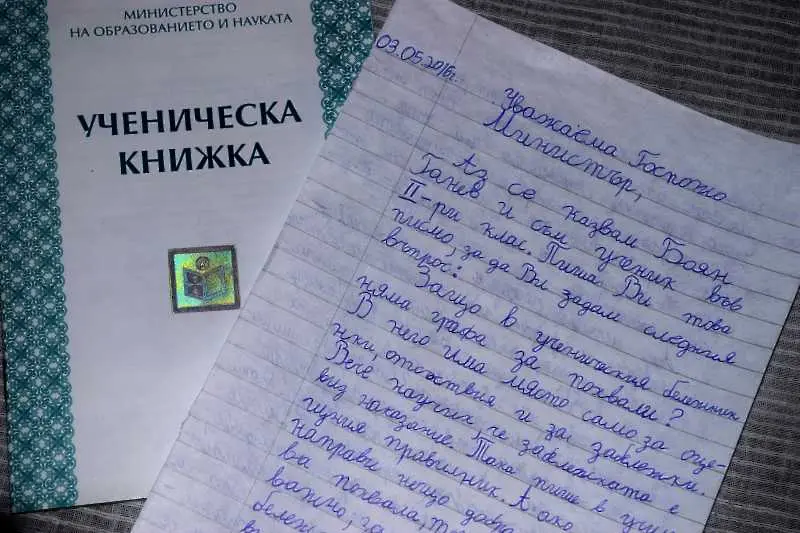 МИНИСТЕРСТВО
НА ОБРАЗОВАНИЕТО И НАУКАТА
УЧЕНИЧЕСКА
КНИЖКА
03.05.2016г.
Уважаема Госпожо
Министър,
Аз се казвам Боян
Ганев и съм ученик във
II-ри клас. Пиша Ви това
писмо, за да Ви задам следния
въпрос:
Защо в ученическия бележник
няма графа за похвали?
В него има място само за оце-
нки, отсъствия и за забележки.
Вече научих, че забележката е
вид наказание. Така пише в учили
щния правилник. А ако
направи нещо добро
ва похвала,
важно, за
бележ